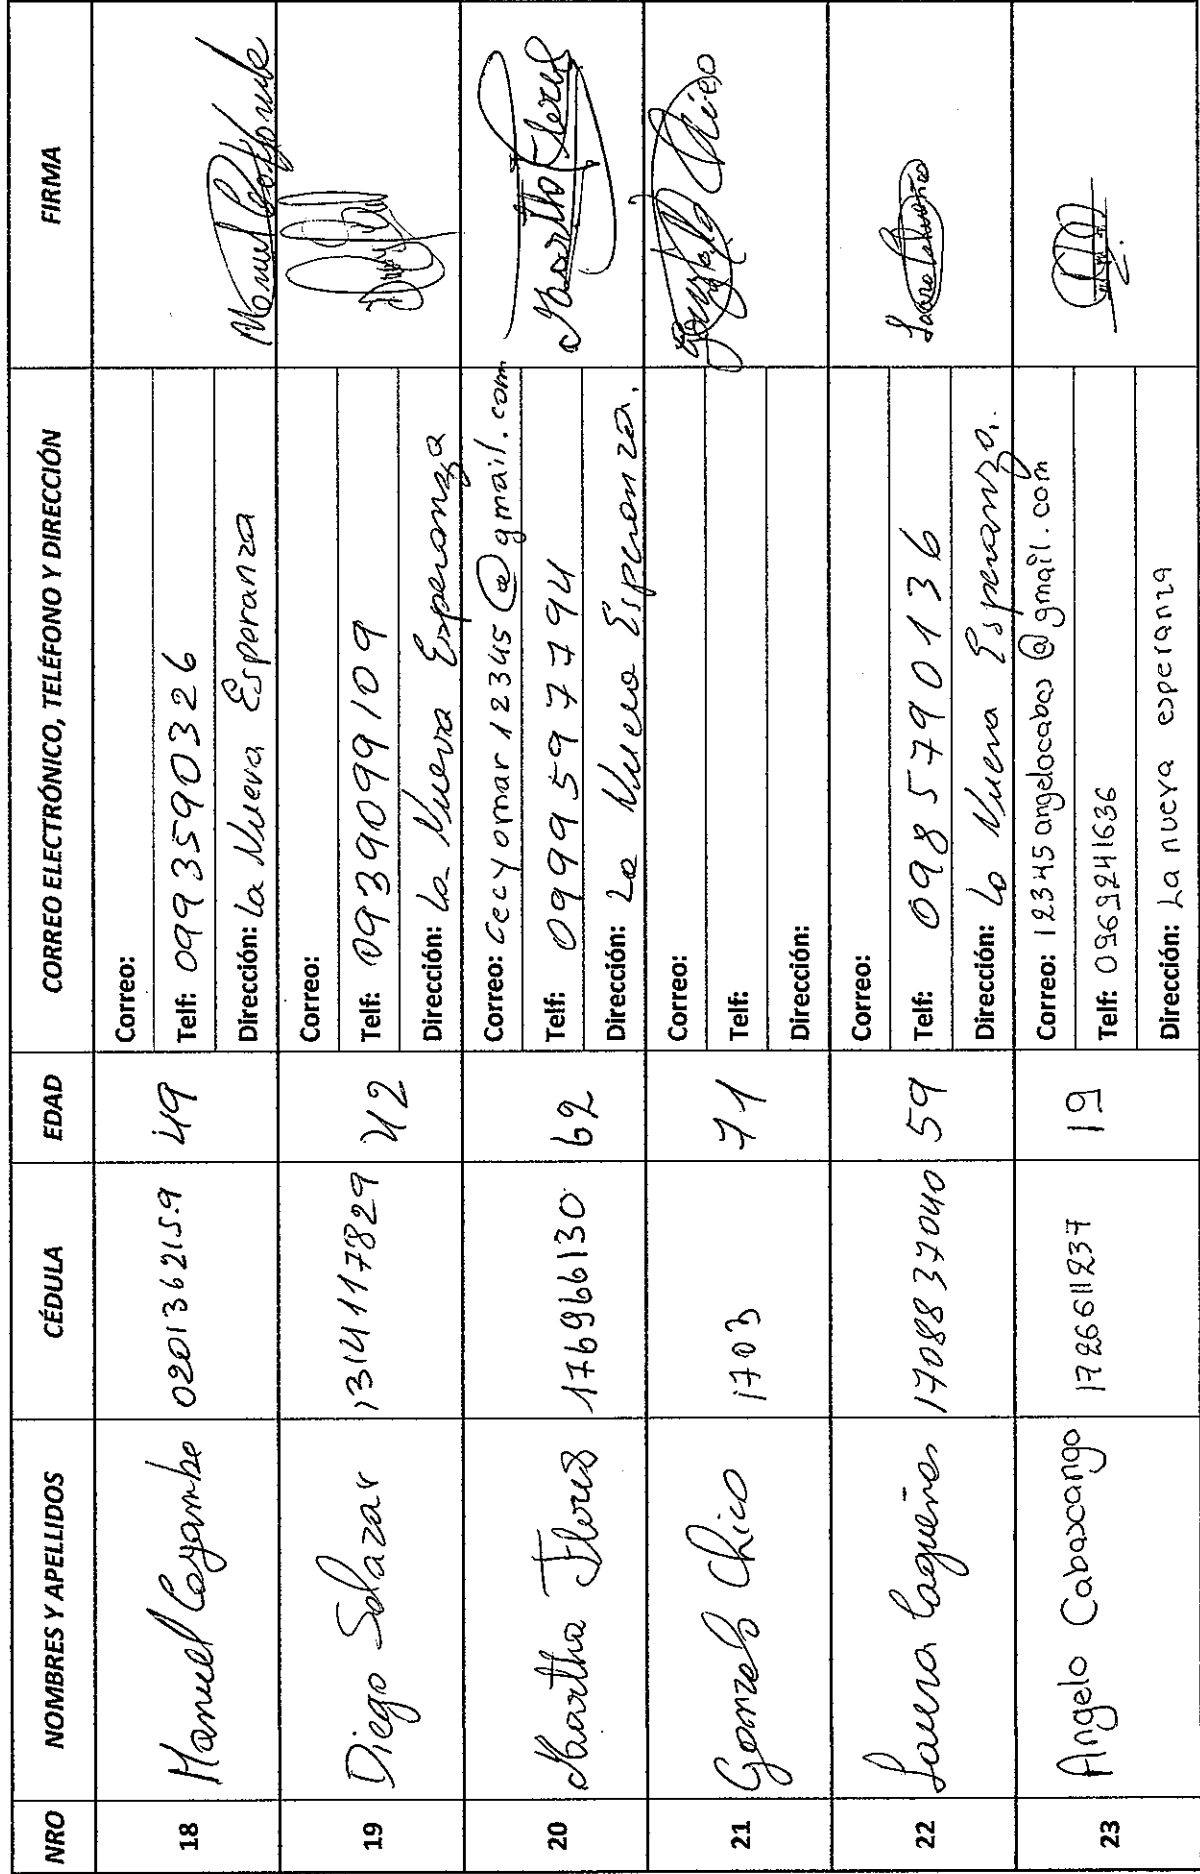 NRO NOMBRES Y APELLIDOS CÉDULA EDAD CORREO ELECTRÓNICO, TELÉFONO Y DIRECCIÓN FIRMA
18 Manuel Cayambe 020136215-9 49
Correo:
Telf: 0993590326
Dirección: La Nueva Esperanza
Manuel
19 Diego Salazar 1314117829 42
Correo:
Telf: 0939099109
Dirección: La Nueva Esperanza
20 Martha Flores 176966130 62
Correo: cecyomar12345@gmail.com
Telf: 0999597794
Dirección: La Nueva Esperanza.
Martha Flores
21 Gonzalo Chico 1703 71
Correo:
Telf:
Dirección:
Gonzalo Chico
22 1708837040 59
Correo:
Telf: 0985790136
Dirección: La Nueva Esperanza.
23 Angelo Cabascango 1726611237 19
Correo: 12345angelocabas@gmail.com
Telf: 0969241636
Dirección: La nueva esperanza